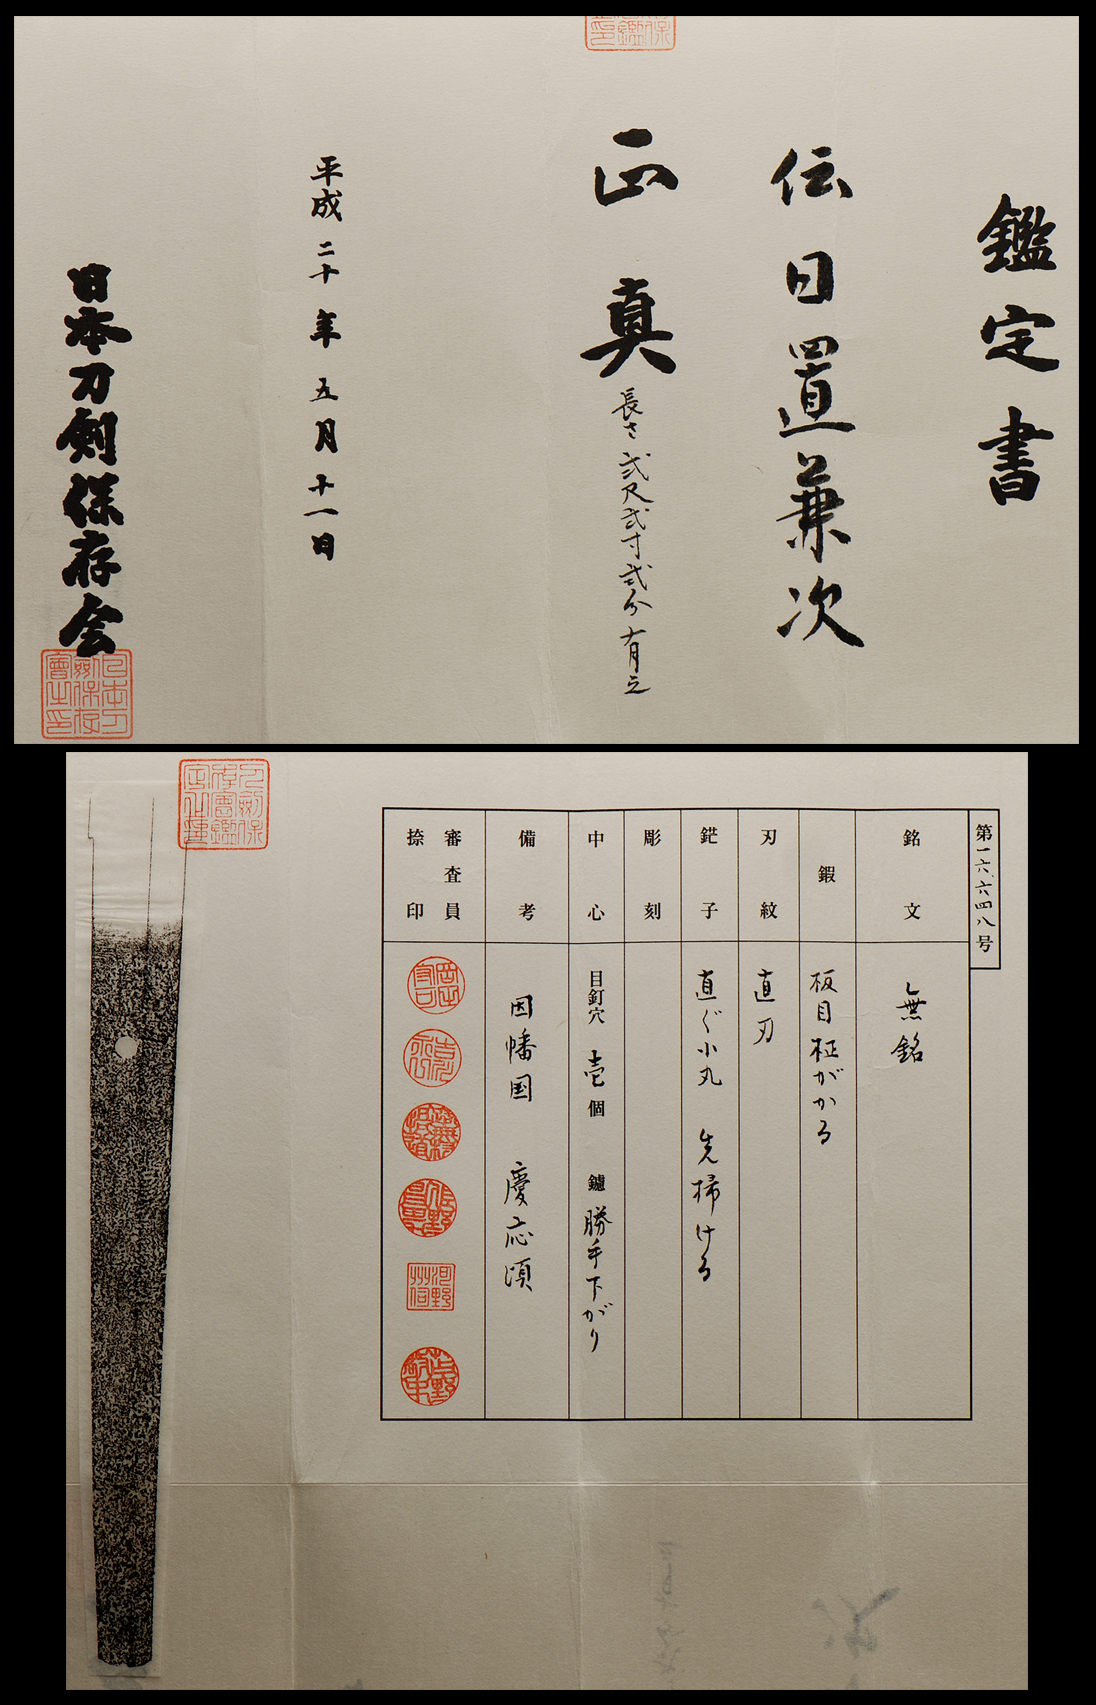 鑑定書
伝日置兼次
正真
長さ弐尺弐寸弐分有之
平成二十年五月十一日
日本刀剣保存会
第一六、六四八号
銘文
無銘
鍜
板目柾がかる
刃紋
直刃
鋩子
直ぐ小丸 先掃ける
彫刻
中心
目釘穴 壱個 鑢 勝手下がり
備考
因幡国 慶応頃
審査員
捺印